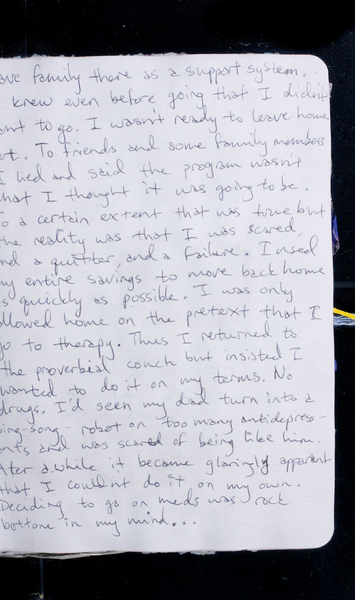 ave family there as a support system.
I knew even before going that I didn't
ant to go. I wasn't ready to leave home
. To friends and some family members
I lied and said the program wasn't
hat I thought it was going to be.
To a certain extent that was true but
the reality was that I was scared,
nd a quitter, and a failure. I used
my entire savings to move back home
as quickly as possible. I was only
llowed home on the pretext that I
go to therapy. Thus I returned to
the proverbial couch but insisted I
wanted to do it on my terms. No
drugs. I'd seen my dad turn into a
sing-song-robot on too many antidepress-
ants and was scared of being like him.
After awhile it became glaringly apparent
that I couldn't do it on my own.
Deciding to go on meds was rock
bottom in my mind...